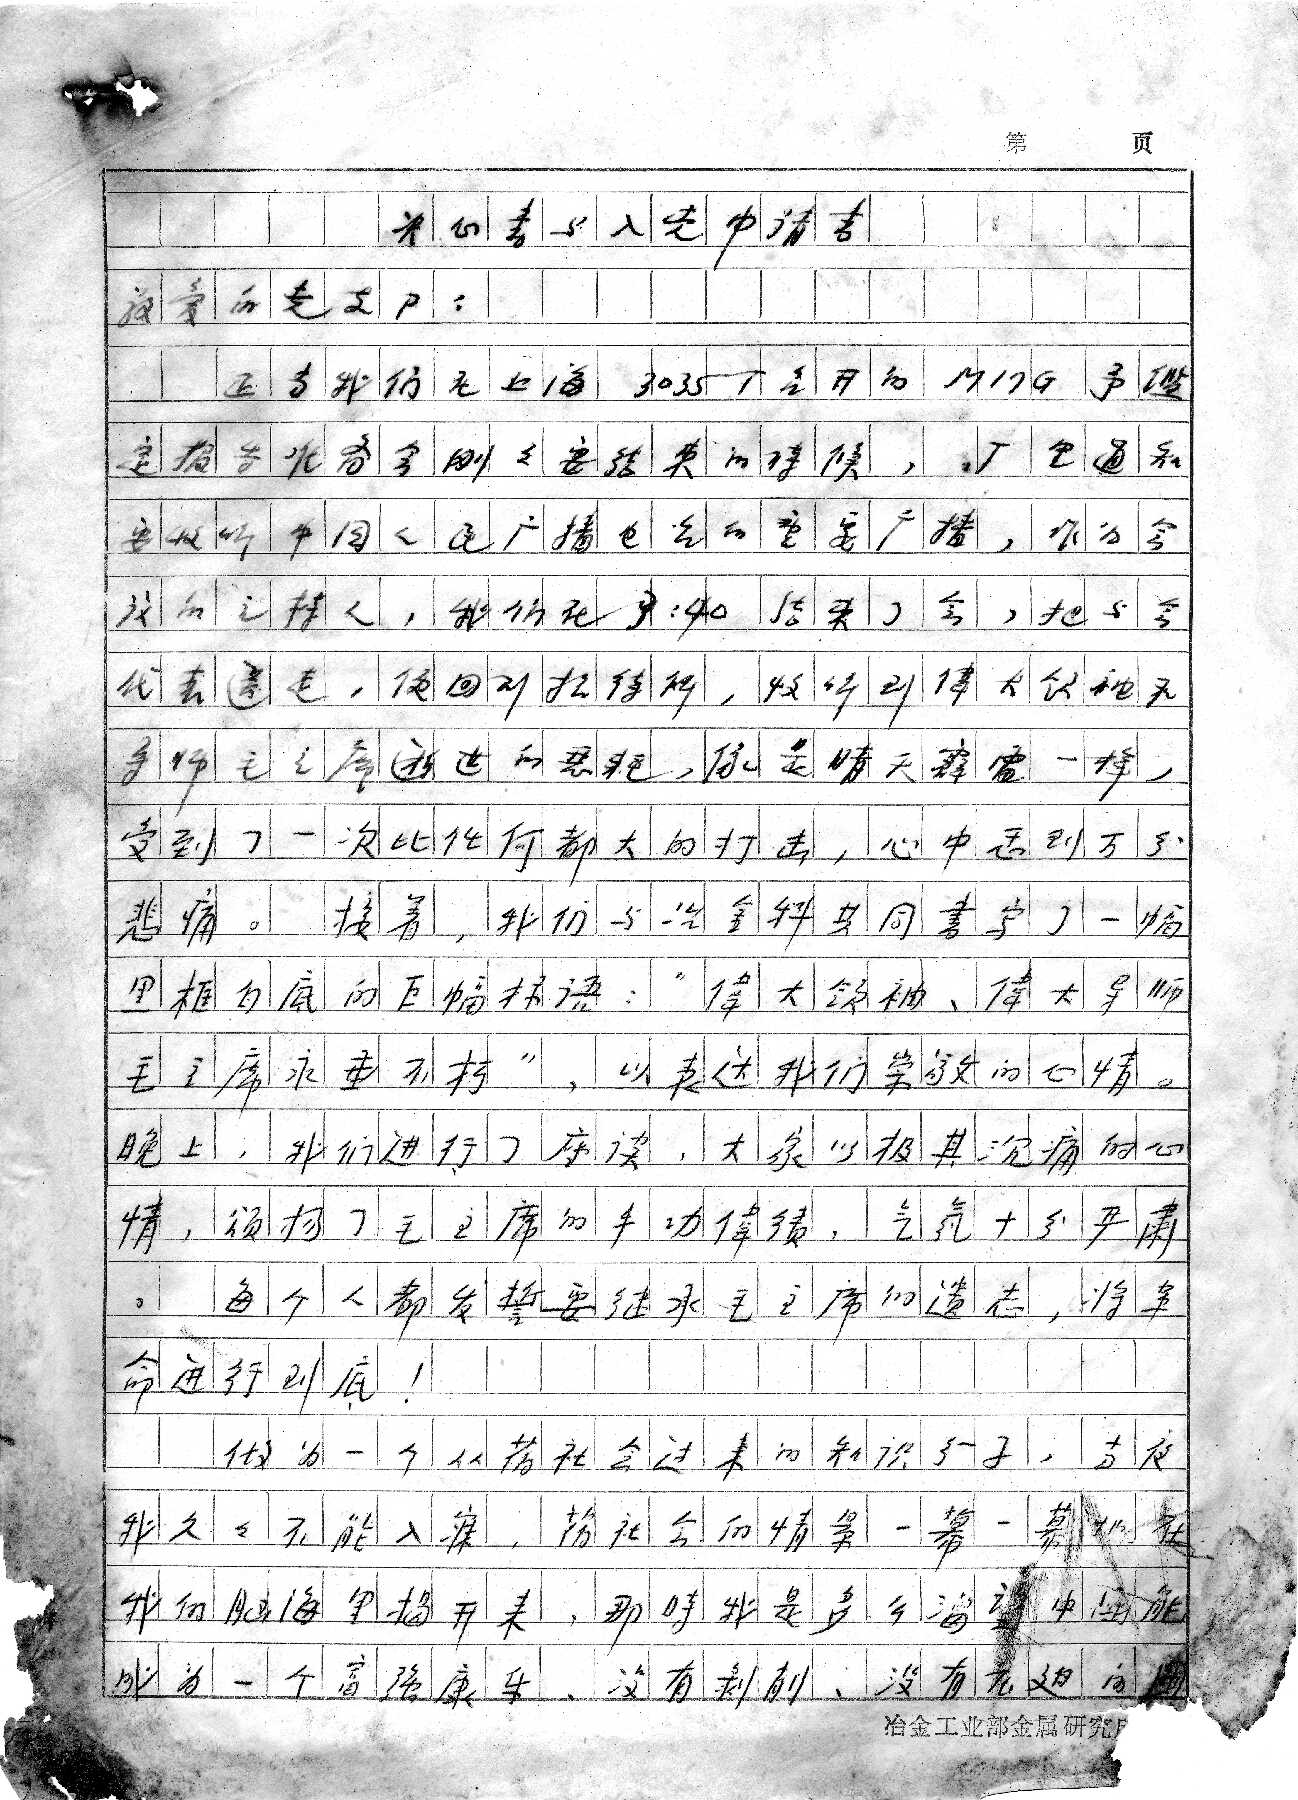 第 页
决心书与入党申请书
敬爱的党支部:
正当我们在上海3035厂召开的M17G予鉴
定报告准备会刚刚要结束的时候,厂里通知
要收听中国人民广播电台的重要广播,作为会
议的主持人,我们在3:40结束了会,把与会
代表送走,便回到招待所,收听到伟大领袖和
导师毛主席逝世的恶耗,像是晴天霹雳一样,
受到了一次比任何都大的打击,心中感到万分
悲痛。接着,我们与冶金科共同书写了一幅
黑框白底的巨幅标语:"伟大领袖、伟大导师
毛主席永垂不朽",以表达我们崇敬的心情。
晚上,我们进行了座谈,大家以极其沉痛的心
情,颂扬了毛主席的丰功伟绩,气氛十分严肃
。每个人都发誓要继承毛主席的遗志,将革
命进行到底!
做为一个从旧社会过来的知识分子,当夜
我久久不能入寐,旧社会的情景一幕一幕地在
我的脑海里揭开来,那时我是多么渴望中国能
成为一个富强康乐、没有剥削、没有压迫的国
冶金工业部金属研究